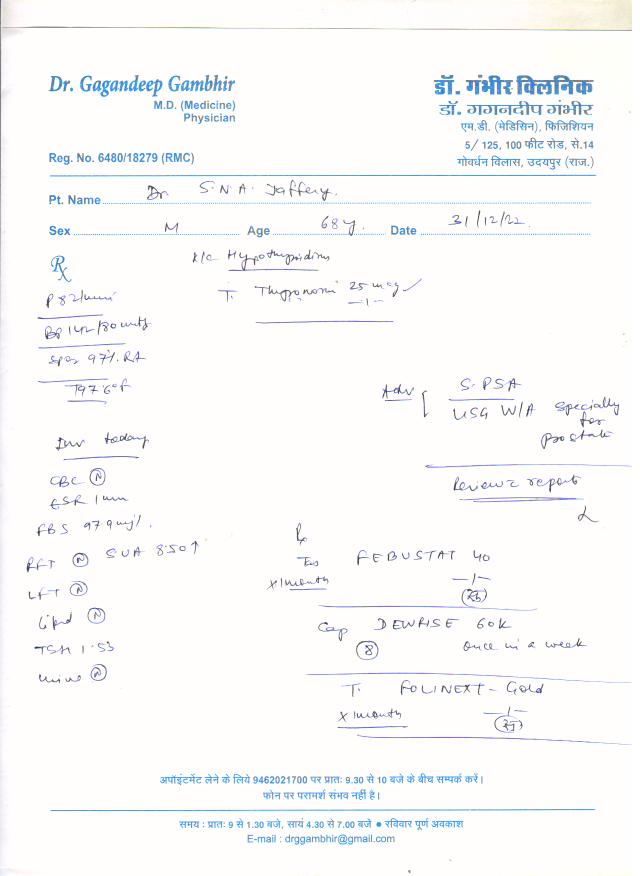 Dr. Gagandeep Gambhir
M.D. (Medicine)
Physician
Reg. No. 6480/18279 (RMC)
डॉ. गंभीर क्लिनिक
डॉ. गगनदीप गंभीर
एम.डी. (मेडिसिन), फिजिशियन
5/ 125, 100 फीट रोड, से.14
गोवर्धन विलास, उदयपुर (राज.)
Pt. Name Dr S.N.A. Jaffery.
Sex M Age 68y. Date 31/12/22
Rx
K/c Hypothyroidism
T. Thyronorm 25 mcg
—1—
P 82/min
BP 142/80 mmHg
SpO2 97% RA
T 97.6°F
Adv
S. PSA
USG W/A specially
for
prostate
Review c report
Inv today
CBC (N)
ESR 1 mm
FBS 97.9 mg%.
RFT (N) SUA 8.50↑
LFT (N)
Lipid (N)
TSH 1.53
Urine (N)
Rx
Tab FEBUSTAT 40
x 1 month —1—
Cap DEWRISE 60K
(8) once in a week
T. FOLINEXT - Gold
x 1 month —1—
अपॉइंटमेंट लेने के लिये 9462021700 पर प्रातः 9.30 से 10 बजे के बीच सम्पर्क करें।
फोन पर परामर्श संभव नहीं है।
समय : प्रातः 9 से 1.30 बजे, सायं 4.30 से 7.00 बजे ● रविवार पूर्ण अवकाश
E-mail : drggambhir@gmail.com